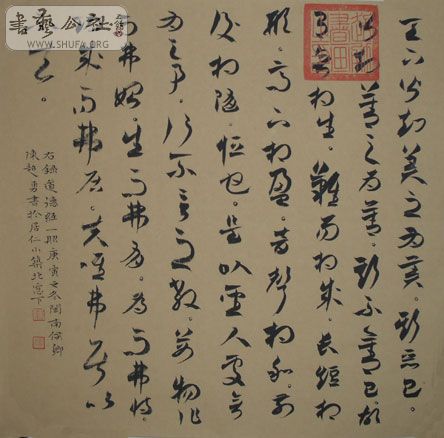 天下皆知美之為美。斯惡已。
皆知善之為善。斯不善已。故
有無相生。難易相成。長短相
形。高下相盈。音聲相和。前
後相隨。恒也。是以聖人處無
為之事。行不言之教。萬物作
而弗始。生而弗有。為而弗恃。
功成而弗居。夫唯弗居。是以
不去。
右錄道德經一則庚寅之冬閩南
陳超勇書於居仁小築北窗下
書藝公社
WWW.SHUFA.ORG